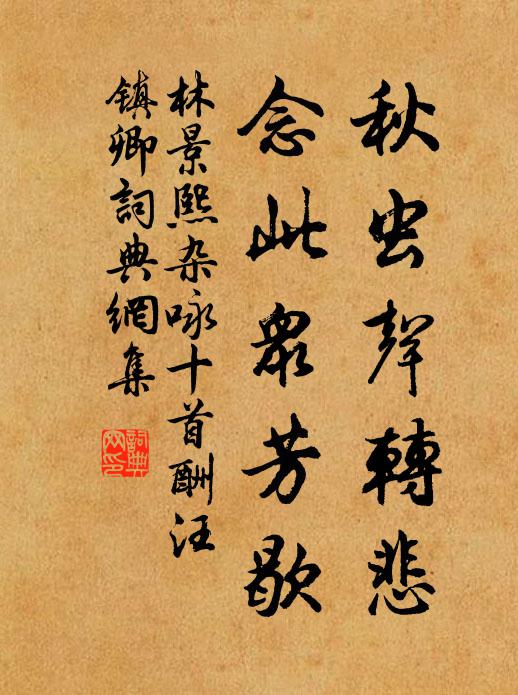 秋虫聲轉悲
念此眾芳歇
林景熙杂咏十首酬汪
镇卿詞典網集
詞典網印